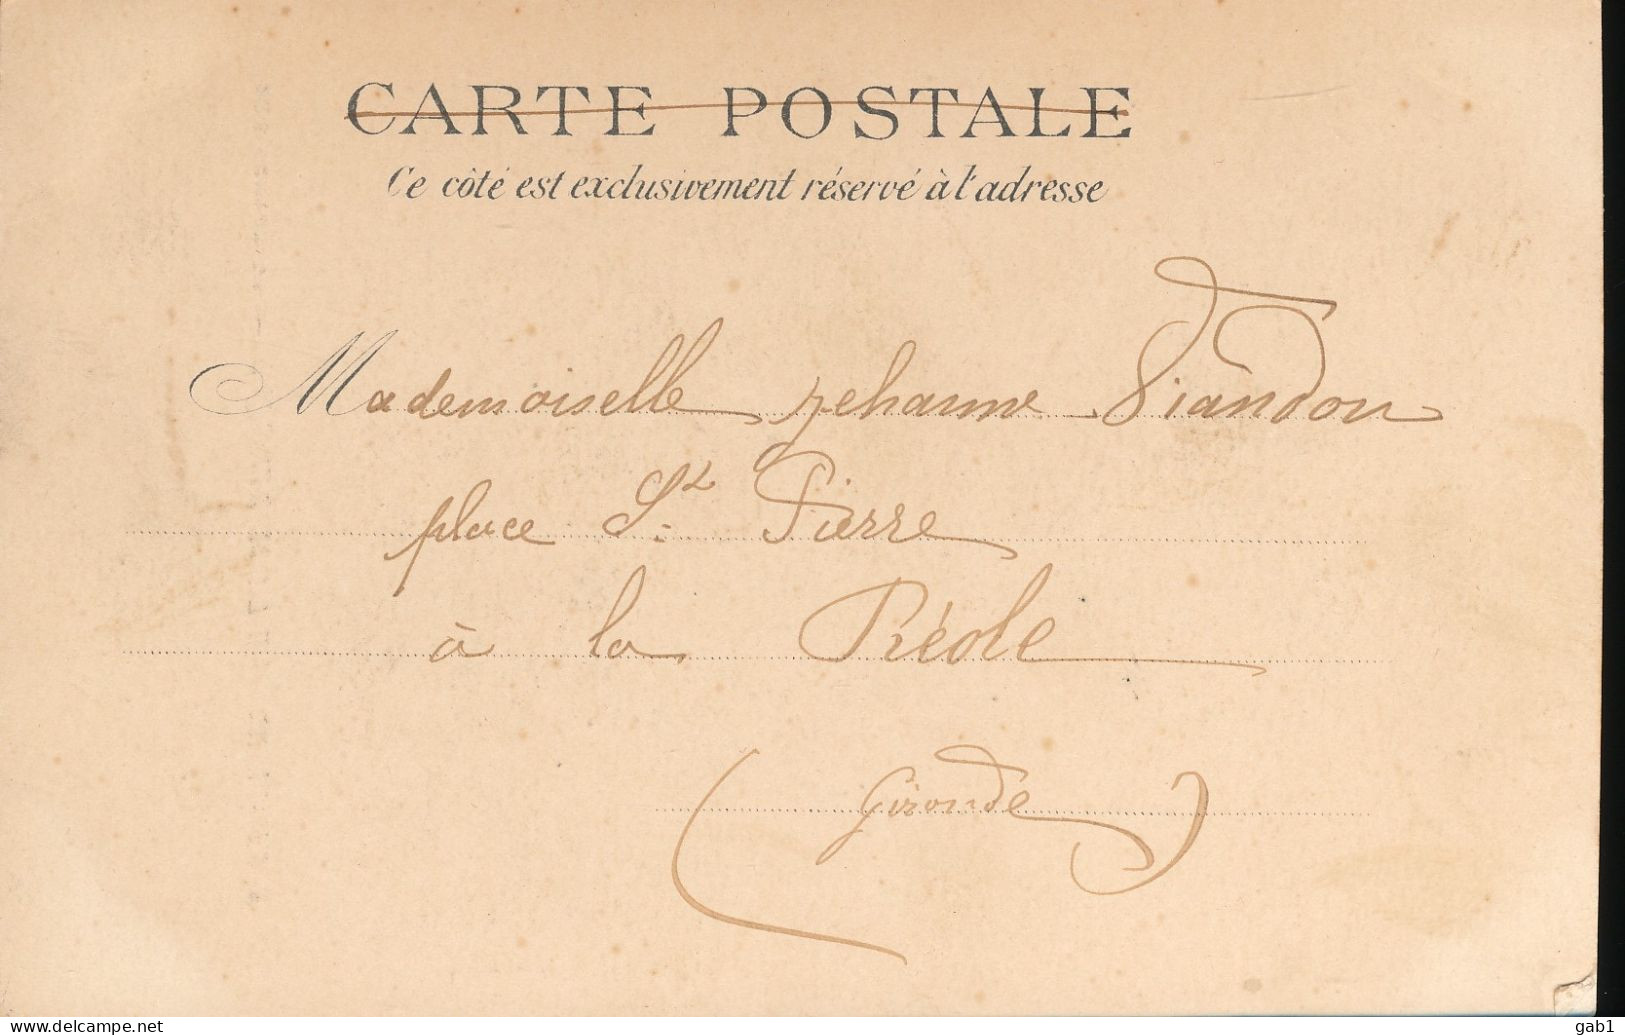 CARTE POSTALE
Ce côté est exclusivement réservé à l'adresse
Mademoiselle Jehanne Viandon
place St Pierre
à la Réole
(Gironde)
www.delcampe.net
gab1